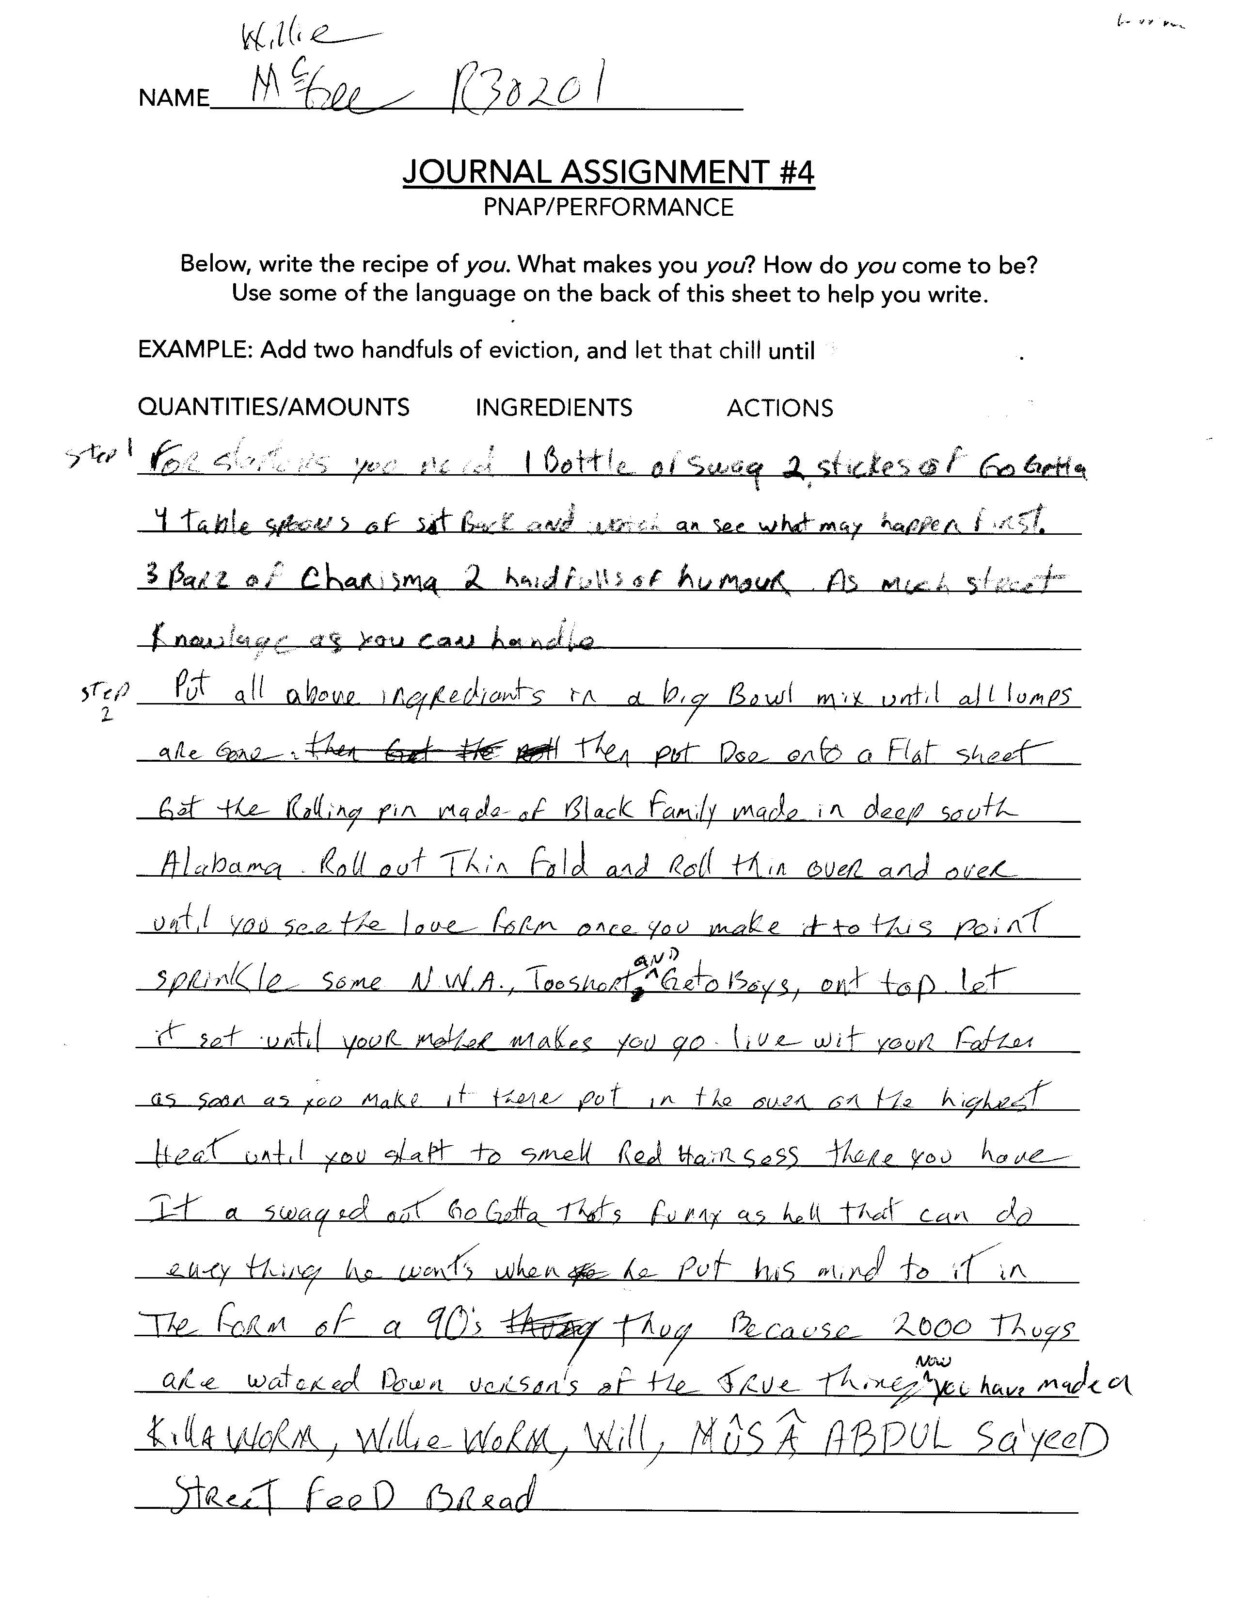 Willie
NAME McGee R30201
JOURNAL ASSIGNMENT #4
PNAP/PERFORMANCE
Below, write the recipe of you. What makes you you? How do you come to be?
Use some of the language on the back of this sheet to help you write.
EXAMPLE: Add two handfuls of eviction, and let that chill until
QUANTITIES/AMOUNTS INGREDIENTS ACTIONS
Step 1 For starters you need 1 Bottle of Swag 2 stickes of Go Getta
4 Table spoons of sit Back and an see what may happen first.
3 Barz of Charisma 2 handfulls of humour. As much street
Knowlage as you can handle
step 2 Put all above ingrediants in a big Bowl mix until all lumps
are Gone. then Get the roll then put Doe onto a Flat sheet
Get the Rolling pin made of Black Family made in deep south
Alabama. Roll out Thin Fold and Roll thin over and over
until you see the love form once you make it to this point
sprinkle some N.W.A., Tooshort, AND Geto Boys, ont top. let
it set until your mother makes you go. live wit your Father
as soon as you make it there put in the oven on the highest
Heat until you start to smell Red Hair sess there you have
It a swaged out Go Getta Thats funny as hell that can do
every thing he wants when he put his mind to it in
The form of a 90's thug Because 2000 Thugs
are watered Down verson's of the True thing Now you have made a
Killa WORM, Willie WORM, Will, MÛSÂ ABDUL Sa'yeeD
STReeT FeeD BRead